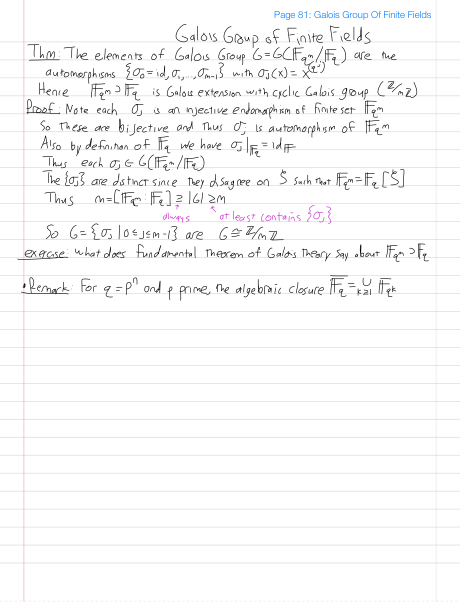 Page 81: Galois Group Of Finite Fields
Galois Group of Finite Fields
Thm: The elements of Galois Group G=G(𝔽_{q^m}/𝔽_q) are the
automorphisms {σ_0=id, σ_1, ..., σ_{m-1}} with σ_j(x) = x^{(q^j)}
Hence 𝔽_{q^m} ⊃ 𝔽_q is Galois extension with cyclic Galois group (ℤ/mℤ)
Proof: Note each σ_j is an injective endomorphism of finite set 𝔽_{q^m}
So these are bijective and thus σ_j is automorphism of 𝔽_{q^m}
Also by definition of 𝔽_q we have σ_j|_{𝔽_q} = id_𝔽
Thus each σ_j ∈ G(𝔽_{q^m}/𝔽_q)
The {σ_j} are distinct since they disagree on ζ such that 𝔽_{q^m}=𝔽_q[ζ]
Thus m=[𝔽_{q^m}:𝔽_q] ≥ |G| ≥ m
always at least contains {σ_j}
So G={σ_j | 0≤j≤m-1} are G≅ℤ/mℤ
exercise: what does fundamental theorem of Galois Theory say about 𝔽_{q^m}⊃𝔽_q
• Remark: For q=p^n and p prime, the algebraic closure \overline{𝔽_q} = ∪_{k≥1} 𝔽_{q^k}